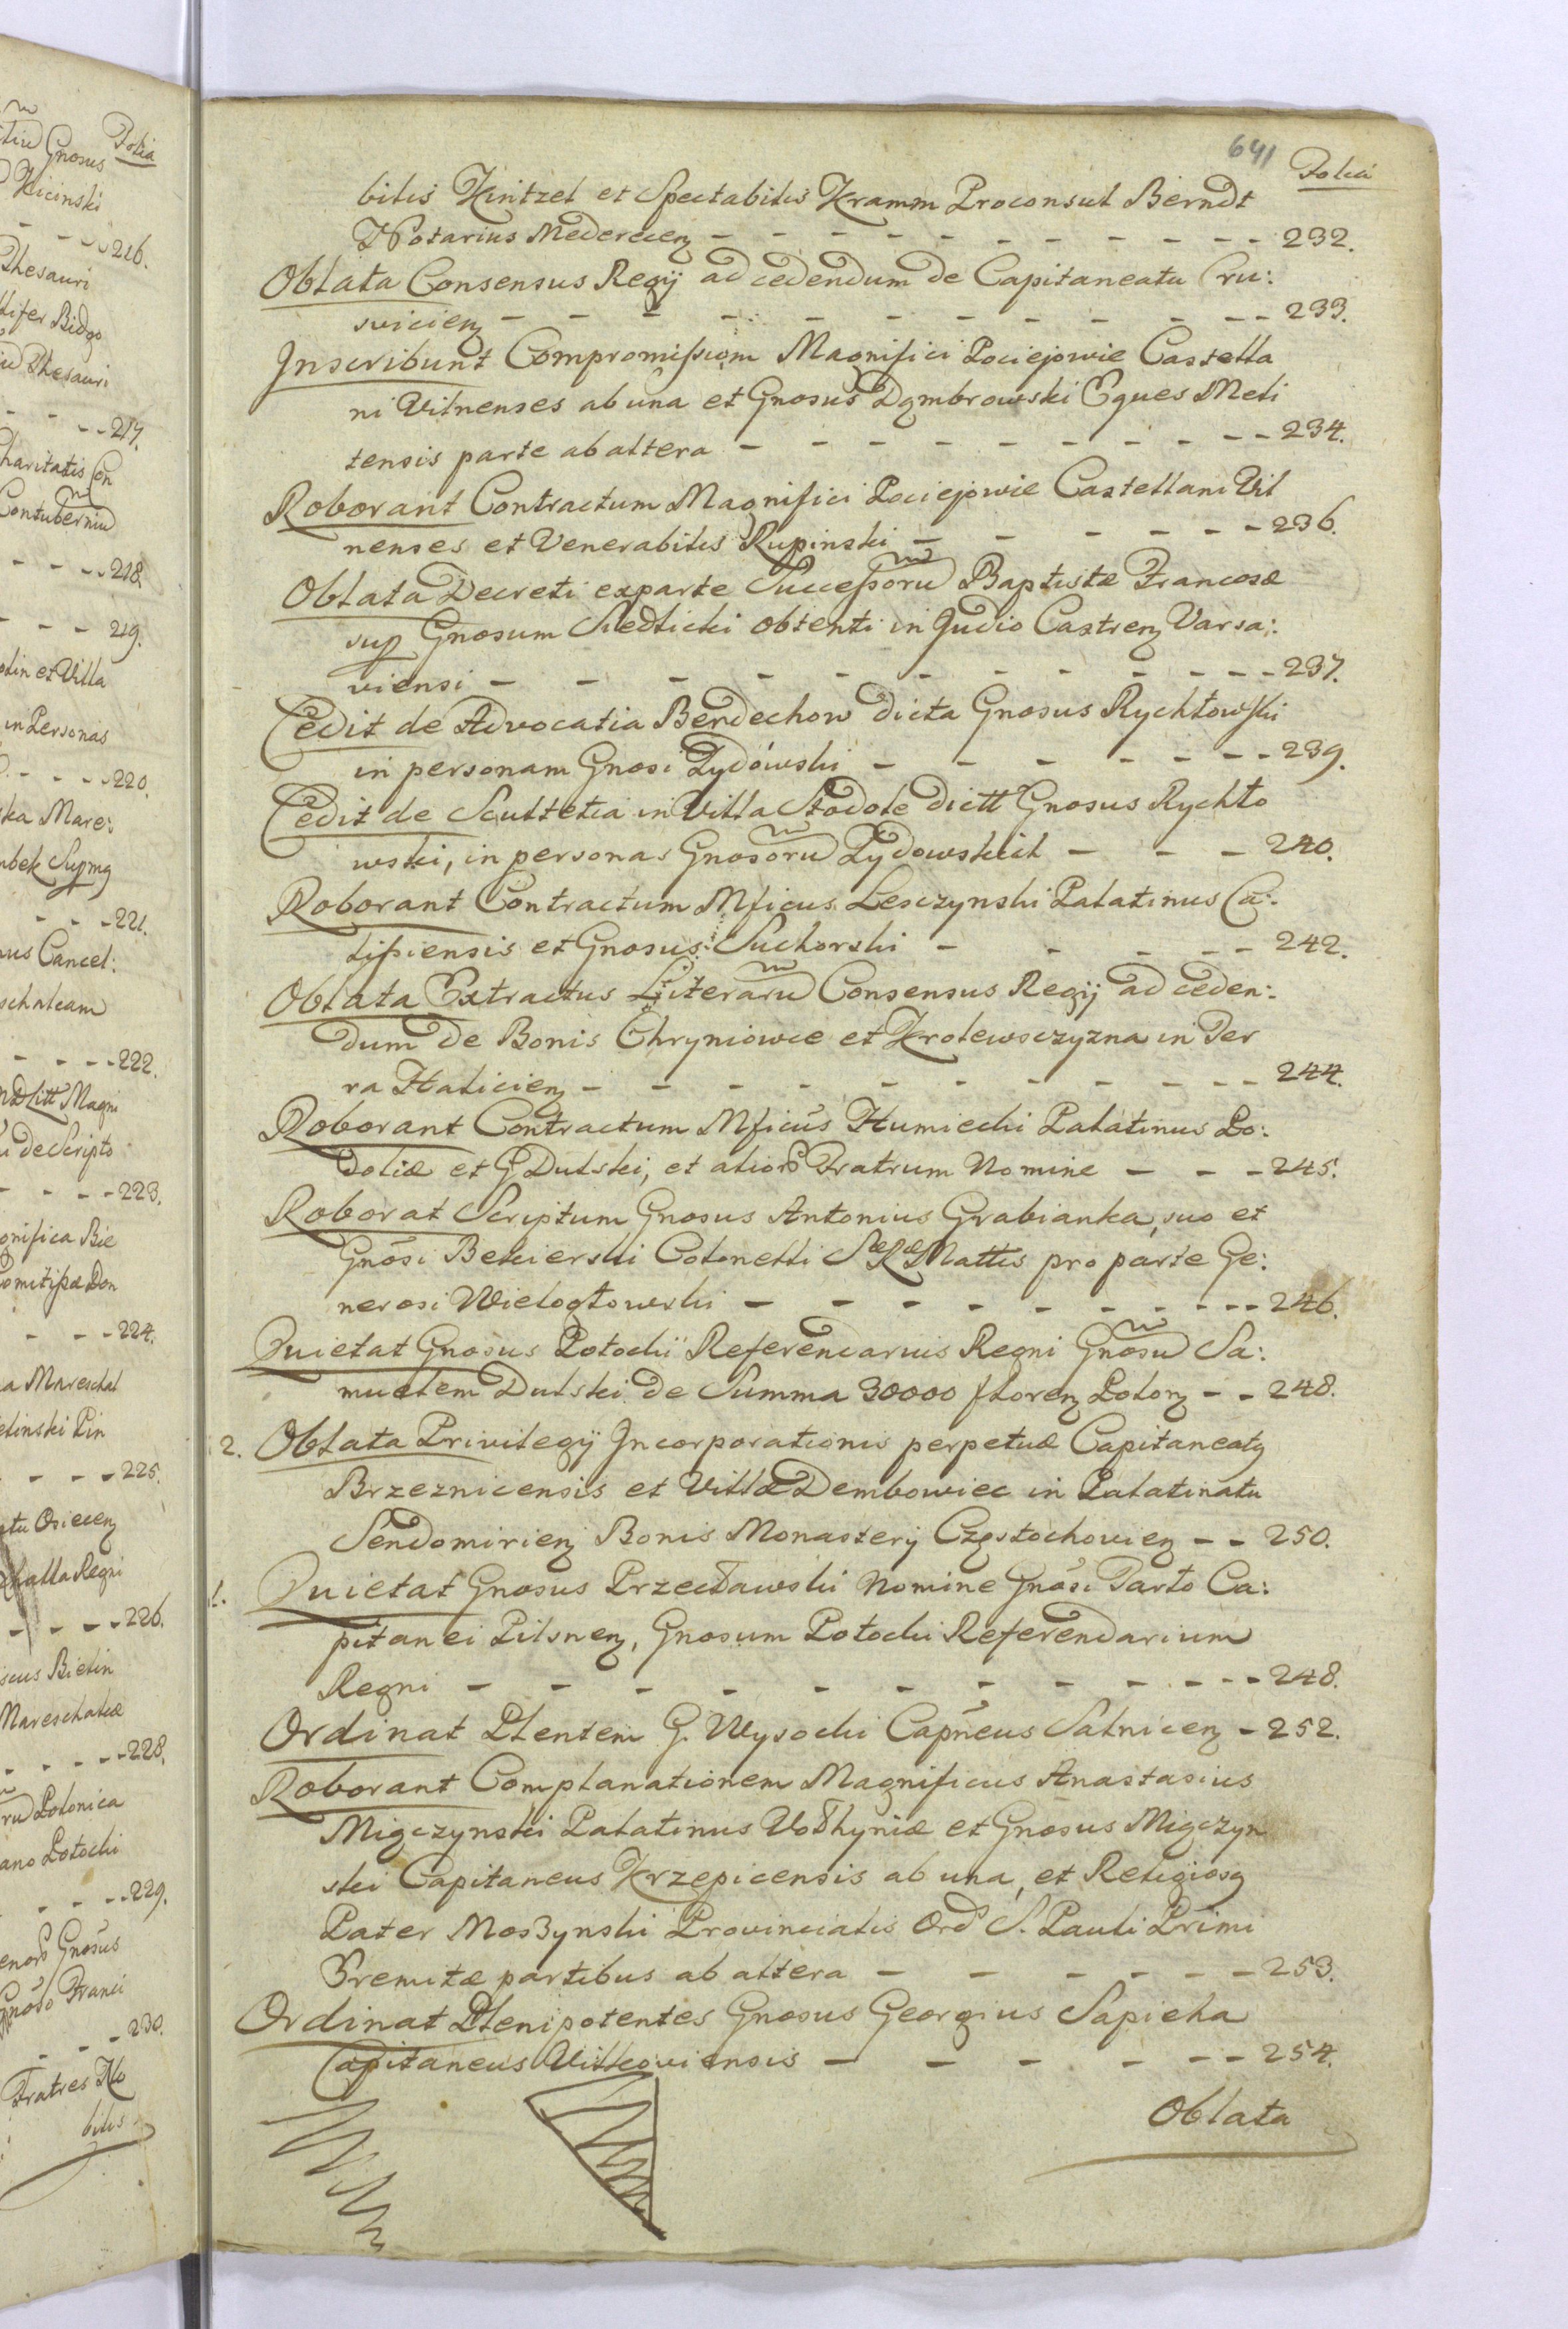 641
Folia
bilis Hintzel et Spectabilis Kramm Proconsul Berndt
Notarius Medereceń - - - 232.
Oblata Consensus Regij ad cedendum de Capitaneatu Cru:
svicień - - - 233.
Inscribunt Compromissiom Magnifici Pociejowie Castella
ni Vilnenses ab una et Gnosus Dąmbrowski Eques Meli
tensis parte ab altera - - - 234.
Roborant Contractum Magnifici Pociejowie Castellani Vil
nenses et Venerabilis Rupinski - - - 236.
Oblata Decreti ex parte Successorū Baptistæ Francosæ
sup Gnosum Siedlicki obtenti in Judio Castreń Varsa:
viensi - - - 237.
Cedit de Advocatia Berdechow dicta Gnosus Rychłowski
in personam Gnosi Zydówski - - - 239.
Cedit de Scultetia in Villa Stodole dictt Gnosus Rychło
wski, in personas Gnosorū Zydowskich - - - 240.
Roborant Contractum Mficus Lesczynski Palatinus Ca:
lissiensis et Gnosus Suchorski - - - 242.
Oblata Extractus Literarū Consensus Regij ad ceden:
dum de Bonis Chryniowce et Krolewsczyzna in Ter
ra Halicień - - - 244.
Roborant Contractum Mficus Humiecki Palatinus Po:
doliæ et G. Dulski, et alior Fratrum Nomine - - - 245.
Roborat Scriptum Gnosus Antonius Grabianka, suo et
Gnosi Bekierski Colonelli S R Mattis pro parte Ge:
nerosi Wielogłowski - - - 246.
Quietat Gnosus Potocki Referendarius Regni Gnosū Sa:
muelem Dulski de Summa 30000 floreń Poloń - - 248.
2. Oblata Privilegij Incorporationis perpetuæ Capitaneatg
Brzeznicensis et Villæ Dembowiec in Palatinatu
Sendomirień Bonis Monasterij Częstochovień - - 250.
1. Quietat Gnosus Przecławski Nomine Gnosi Tarło Ca:
pitanei Pilsneń, Gnosum Potocki Referendarium
Regni - - - 248.
Ordinat Plentem G. Wysocki Capneus Salnicień - 252.
Roborant Complanationem Magnificus Anastasius
Miączynski Palatinus Vołhyniæ et Gnosus Miączyn
ski Capitaneus Krzepicensis ab una, et Religiosg
Pater Moszynski Provincialis Ord S. Pauli Primi
Eremitæ partibus ab altera - - - 253.
Ordinat Plenipotentes Gnosus Georgius Sapieha
Capitaneus Vilkoviensis - - - 254.
Oblata